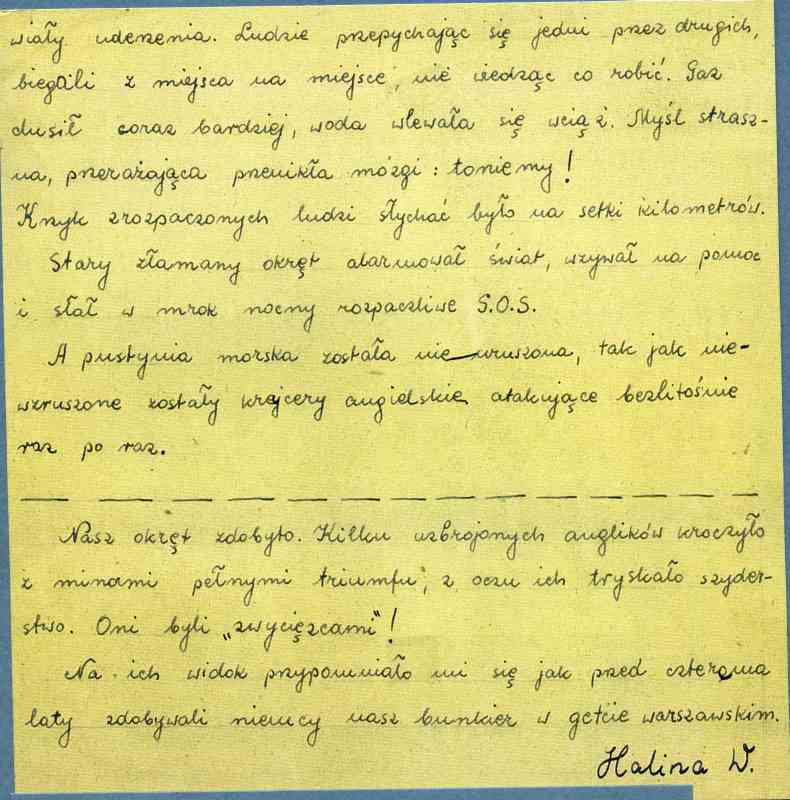 wiały uderzenia. Ludzie przepychając się jedni przez drugich,
biegali z miejsca na miejsce, nie wiedząc co robić. Gaz
dusił coraz bardziej, woda wlewała się wciąż. Myśl strasz-
na, przerażająca przenikła mózgi: toniemy!
Krzyk zrozpaczonych ludzi słychać było na setki kilometrów.
Stary złamany okręt alarmował świat, wzywał na pomoc
i słał w mrok nocny rozpaczliwe S.O.S.
A pustynia morska została niewzruszona, tak jak nie-
wzruszone zostały krejcery angielskie, atakujące bezlitośnie
raz po raz.
Nasz okręt zdobyto. Kilku uzbrojonych anglików kroczyło
z minami pełnymi triumfu, z oczu ich tryskało szyder-
stwo. Oni byli „zwycięzcami"!
Na ich widok przypomniało mi się jak przed czterema
laty zdobywali niemcy nasz bunkier w getcie warszawskim.
Halina W.